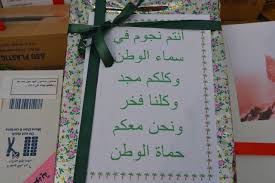 أنتم نجوم في
سماء الوطن
وكلكم مجد
وكلنا فخر
ونحن معكم
حماة الوطن